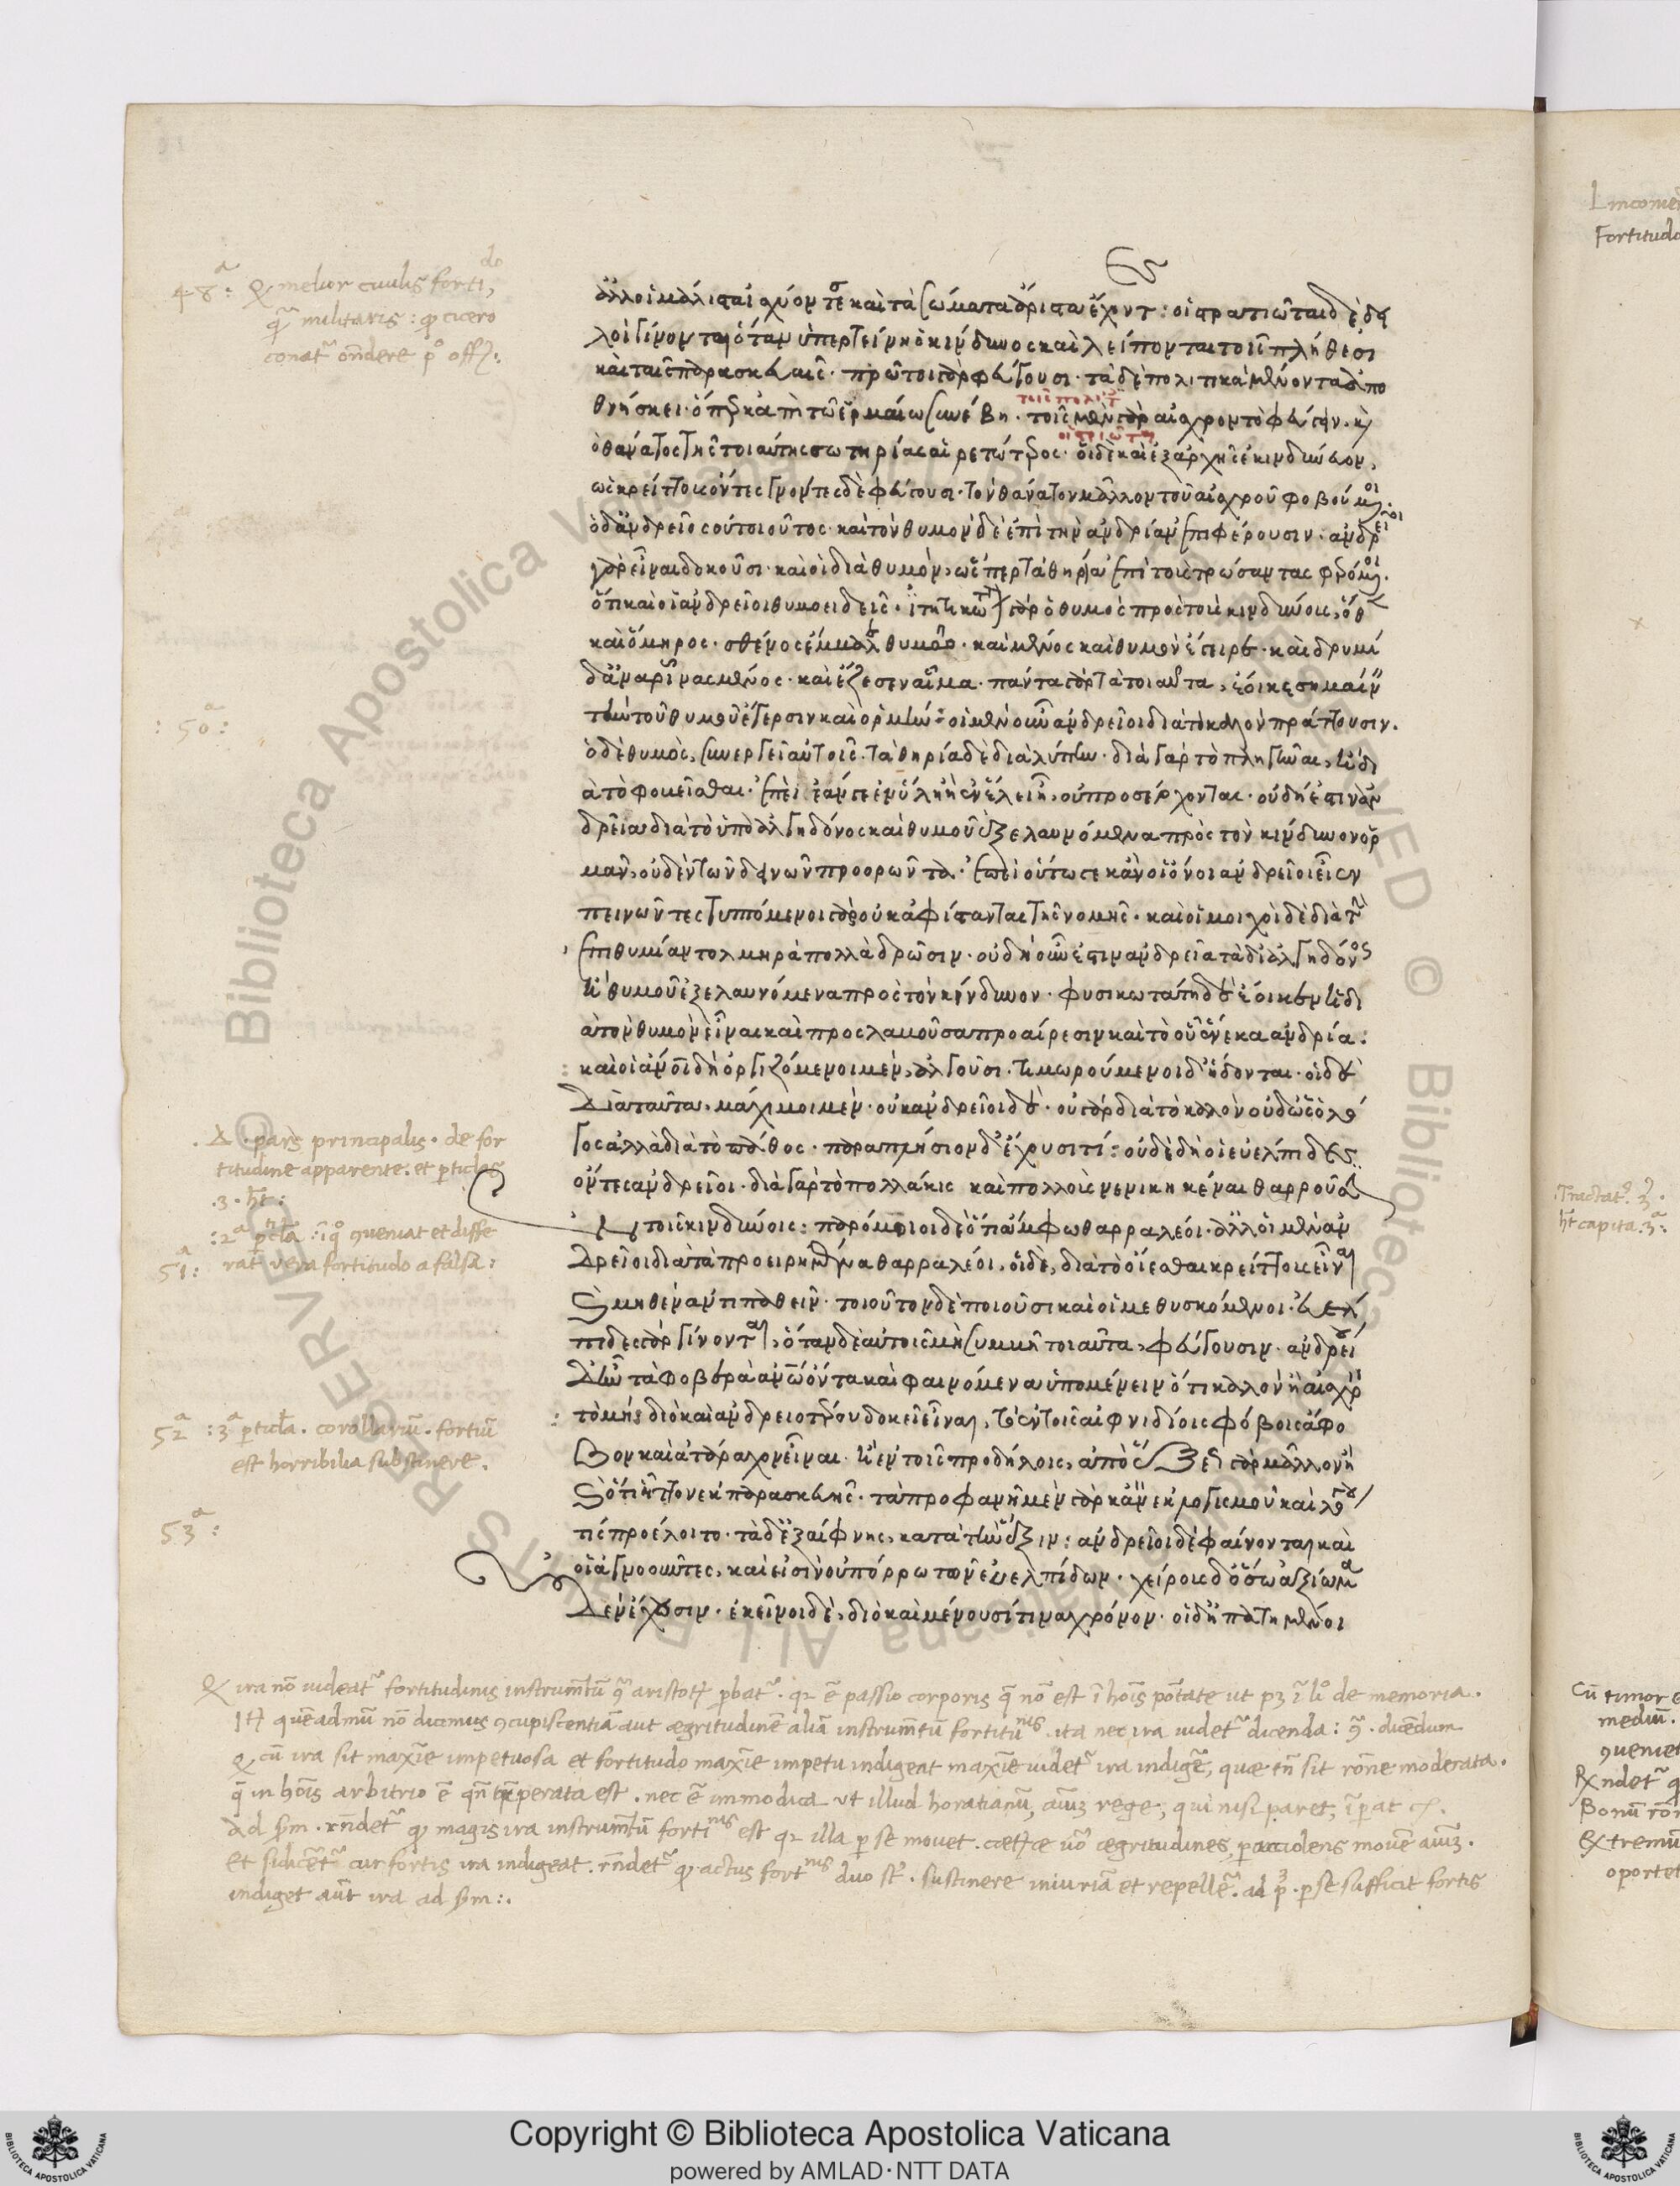 48ᵃ: melior ciuilis fortido
militaris: cicero
conatʳ oñdere offʒ:
ἀλλ' οἱ μάλιστα ἰσχύοντες καὶ τὰ σώματα ἄριστα ἔχοντ: οἱ στρατιῶται δὲ δει
λοὶ γίνονται ὅταν ὑπερτείνη ὁ κίνδυνος καὶ λείπονται τοῖς πλήθεσι
καὶ ταῖς παρασκευαῖς· πρῶτοι γὰρ φεύγουσι· τὰ δὲ πολιτικὰ μένοντα ἀπο
τοῖς πολιτ
θνήσκει· ὅπερ κἀπὶ τῶ ἑρμαίω συνέβη· τοῖς μὲν γὰρ αἰσχρὸν τὸ φεύγειν· κ
οἱ στρατιῶται
ὁ θάνατος τῆς τοιαύτης σωτηρίας αἱρετώτερος· οἱ δὲ καὶ ἐξαρχῆς ἐκινδύνευον,
ὡς κρείττους ὄντες γνόντες δὲ φεύγουσι· τὸν θάνατον μᾶλλον τοῦ αἰσχροῦ φοβούμενοι·
ὁ δ' ἀνδρεῖος οὐ τοιοῦτος· καὶ τὸν θυμὸν δὲ ἐπὶ τὴν ἀνδρίαν ἐπιφέρουσιν· ἀνδρεῖοι
γὰρ εἶναι δοκοῦσι· καὶ οἱ διὰ θυμὸν, ὥσπερ τὰ θηρία ἐπὶ τοὺς τρώσαντας φερόμενοι·
ὅτι καὶ οἱ ἀνδρεῖοι θυμοειδεῖς· ἰτητικώτατον γὰρ ὁ θυμὸς πρὸς τοὺς κινδύνους, ὅθεν
καὶ ὅμηρος· σθένος ἔμβαλε θυμῶ· καὶ μένος καὶ θυμὸν ἔγειρε· καὶ δριμὺ
δ' ἀνα ῥῖνας μένος· καὶ ἔζεσεν αἷμα· πάντα γὰρ τὰ τοιαῦτα, ἔοικε σημαίνειν
τὴν τοῦ θυμοῦ ἔγερσιν καὶ ὁρμήν: οἱ μὲν οὖν ἀνδρεῖοι διὰ τὸ καλὸν πράττουσιν.
: 50ᵃ:
ὁ δὲ θυμὸς, συνεργεῖ αὐτοῖς· τὰ θηρία δὲ διὰ λύπην· διὰ γὰρ τὸ πληγῆναι, ἢ δι
ὰ τὸ φοβεῖσθαι· ἐπεὶ ἐάν γε ἐν ὕλη ἢ ἐν ἕλει ἦ, οὐ προσέρχονται· οὐ δή ἐστιν ἀν
δρεῖα διὰ τὸ ὑπὸ ἀλγηδόνος καὶ θυμοῦ ἐξελαυνόμενα πρὸς τὸν κίνδυνον ὁρ
μᾶν, οὐδὲν τῶν δεινῶν προορῶντα· ἐπεὶ οὕτως γε κἂν οἱ ὄνοι ἀνδρεῖοι εἶεν
πεινῶντες τυπτόμενοι γὰρ οὐκ ἀφίστανται τῆς νομῆς· καὶ οἱ μοιχοὶ δὲ διὰ τὴν
ἐπιθυμίαν τολμηρὰ πολλὰ δρῶσιν· οὐ δὴ οὖν ἐστιν ἀνδρεῖα τὰ δι' ἀλγηδόνος
ἢ θυμοῦ ἐξελαυνόμενα πρὸς τὸν κίνδυνον· φυσικωτάτη δὲ ἔοικεν ἡ δι
ὰ τὸν θυμὸν εἶναι καὶ προσλαβοῦσα προαίρεσιν καὶ τὸ οὗ ἕνεκα ἀνδρία:
καὶ οἱ ἄνοι δὴ ὀργιζόμενοι μὲν, ἀλγοῦσι· τιμωρούμενοι δ' ἥδονται· οἱ δὲ
διὰ ταῦτα, μάχιμοι μὲν· οὐκ ἀνδρεῖοι δέ· οὐ γὰρ διὰ τὸ καλὸν οὐδ' ὡς ὁ λό
. Δ . pars principalis . de for
titudine apparente: et ꝑticlas
.3. ht̃:
γος ἀλλὰ διὰ τὸ πάθος· παραπλήσιον δ' ἔχουσί τι: οὐδὲ δὴ οἱ εὐέλπιδες
ὄντες ἀνδρεῖοι· διὰ γὰρ τὸ πολλάκις καὶ πολλοὺς νενικηκέναι θαρροῦσιν
: 2ᵃ : ꝯueniat et diffe
51ᵃ: rat vera fortitudo a falsa:
ἐν τοῖς κινδύνοις: παρόμοιοι δὲ ὅτι ἄμφω θαρραλέοι· ἀλλ' οἱ μὲν ἀν
δρεῖοι διὰ τὰ προειρημένα θαρραλέοι, οἱ δὲ, διὰ τὸ οἴεσθαι κρείττους εἶναι
καὶ μηθὲν ἀντιπαθεῖν· τοιοῦτον δὲ ποιοῦσι καὶ οἱ μεθυσκόμενοι· εὐέλ
πιδες γὰρ γίνονται, ὅταν δὲ αὐτοῖς μὴ συμβῆ τοιαῦτα, φεύγουσιν· ἀνδρεί
ου δ' ἦν τὰ φοβερὰ ἀνω ὄντα καὶ φαινόμενα ὑπομένειν ὅτι καλὸν ἢ αἰσχρὸν
52ᵃ : 3ᵃ ꝑticla. corollariũ. fortiũ
est horribilia substinere.
τὸ μή: διὸ καὶ ἀνδρειοτέρου δοκεῖ εἶναι, τὸ ἐν τοῖς αἰφνιδίοις φόβοις ἄφο
βον καὶ ἀτάραχον εἶναι· ἢ ἐν τοῖς προδήλοις, ἀπὸ ἕξεως γὰρ μᾶλλον ἢ
καὶ ὅτι ἧττον ἐκ παρασκευῆς· τὰ προφανῆ μὲν γὰρ κἂν ἐκ λογισμοῦ καὶ λόγου
53ᵃ:
τὶς προέλοιτο· τὰ δ' ἐξαίφνης, κατὰ τὴν ἕξιν: ἀνδρεῖοι δὲ φαίνονται καὶ
οἱ ἀγνοοῦντες, καὶ εἰσὶν οὐ πόρρω τῶν εὐελπίδων· χείρους δ' ὅσω ἀξίωμα
οὐδὲν ἔχουσιν· ἐκεῖνοι δὲ, διὸ καὶ μένουσί τινα χρόνον· οἱ δ' ἠπατημένοι
ira nõ uideatʳ fortitudinis instrumẽtũ aristotʒ ꝓbatʳ. ẽ passio corporis nõ est ĩ hoĩs põtate ut pʒ de memoria.
quẽadmũ nõ dicimus ꝯcupiscentiã aut ægritudinẽ aliã instrumẽtũ fortitunis. ita nec ira uidetʳ dicenda: . dicẽdum
cũ ira sit maxĩe impetuosa et fortitudo maxĩe impetu indigeat maxĩe uidetʳ ira indigẽ, quæ tñ sit rõne moderata.
in hoĩs arbitrio ẽ est. nec ẽ immodica ut illud horatianũ, aĩuʒ rege, qui nisi paret, ĩꝑat
Ad . rñdetʳ magis ira instrumẽtũ fortinis est illa ꝑ se mouet. cætʒæ ægritudines, mouẽ aĩuʒ.
Et si dicẽtʳ cur fortis ira indigeat. rñdetʳ actus fortnis duo . sustinere iniuriã et repellẽ. ad . ꝑ se sufficit fortis
indiget aũt ira ad :.
Fortitudo
Tractatʳ. 3.
ht̃ capita: 3ᵃ:
Cũ timor
mediũ.
ꝯueniet
Bonũ
extremũ
oportet
© Biblioteca Apostolica Vaticana ALL RIGHTS RESERVED
Copyright © Biblioteca Apostolica Vaticana
powered by AMLAD·NTT DATA
BIBLIOTECA APOSTOLICA VATICANA
BIBLIOTECA APOSTOLICA VATICANA